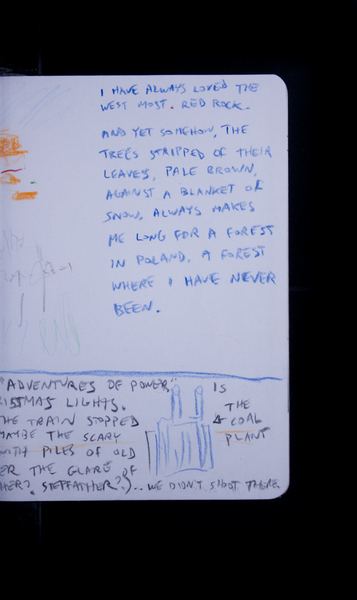 I HAVE ALWAYS LOVED THE
WEST MOST. RED ROCK.
AND YET SOMEHOW, THE
TREES STRIPPED OF THEIR
LEAVES, PALE BROWN,
AGAINST A BLANKET OF
SNOW, ALWAYS MAKES
ME LONG FOR A FOREST
IN POLAND. A FOREST
WHERE I HAVE NEVER
BEEN.
"ADVENTURES OF POWER" IS
ISTMAS LIGHTS. THE
THE TRAIN STOPPED COAL
MAYBE THE SCARY PLANT
WITH PILES OF OLD
ER THE GLARE OF
HER? STEPFATHER?)... WE DIDN'T SHOOT THERE.